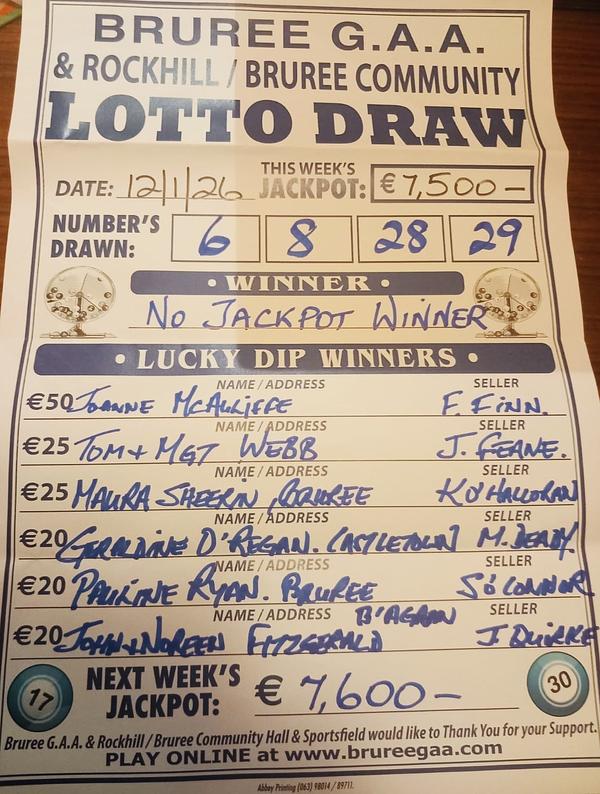 BRUREE G.A.A.
& ROCKHILL / BRUREE COMMUNITY
LOTTO DRAW
DATE: 12/1/26 THIS WEEK'S JACKPOT: €7,500-
NUMBER'S DRAWN: 6 8 28 29
• WINNER •
NO JACKPOT WINNER
• LUCKY DIP WINNERS •
NAME / ADDRESS SELLER
€50 JOANNE McAULIFFE F. FINN.
NAME / ADDRESS SELLER
€25 TOM + MGT WEBB J. FEANE.
NAME / ADDRESS SELLER
€25 MAURA SHEERIN, BRUREE K O'HALLORAN
NAME / ADDRESS SELLER
€20 GERALDINE O'REGAN. CASTLETOWN M. DEADY
NAME / ADDRESS SELLER
€20 PAULINE RYAN. BRUREE S O'CONNOR
NAME / ADDRESS SELLER
€20 JOHN + NOREEN FITZGERALD B'AGRAN J QUIRKE
17 NEXT WEEK'S JACKPOT: € 7,600- 30
Bruree G.A.A. & Rockhill / Bruree Community Hall & Sportsfield would like to Thank You for your Support.
PLAY ONLINE at www.brureegaa.com
Abbey Printing (063) 98014 / 89711.